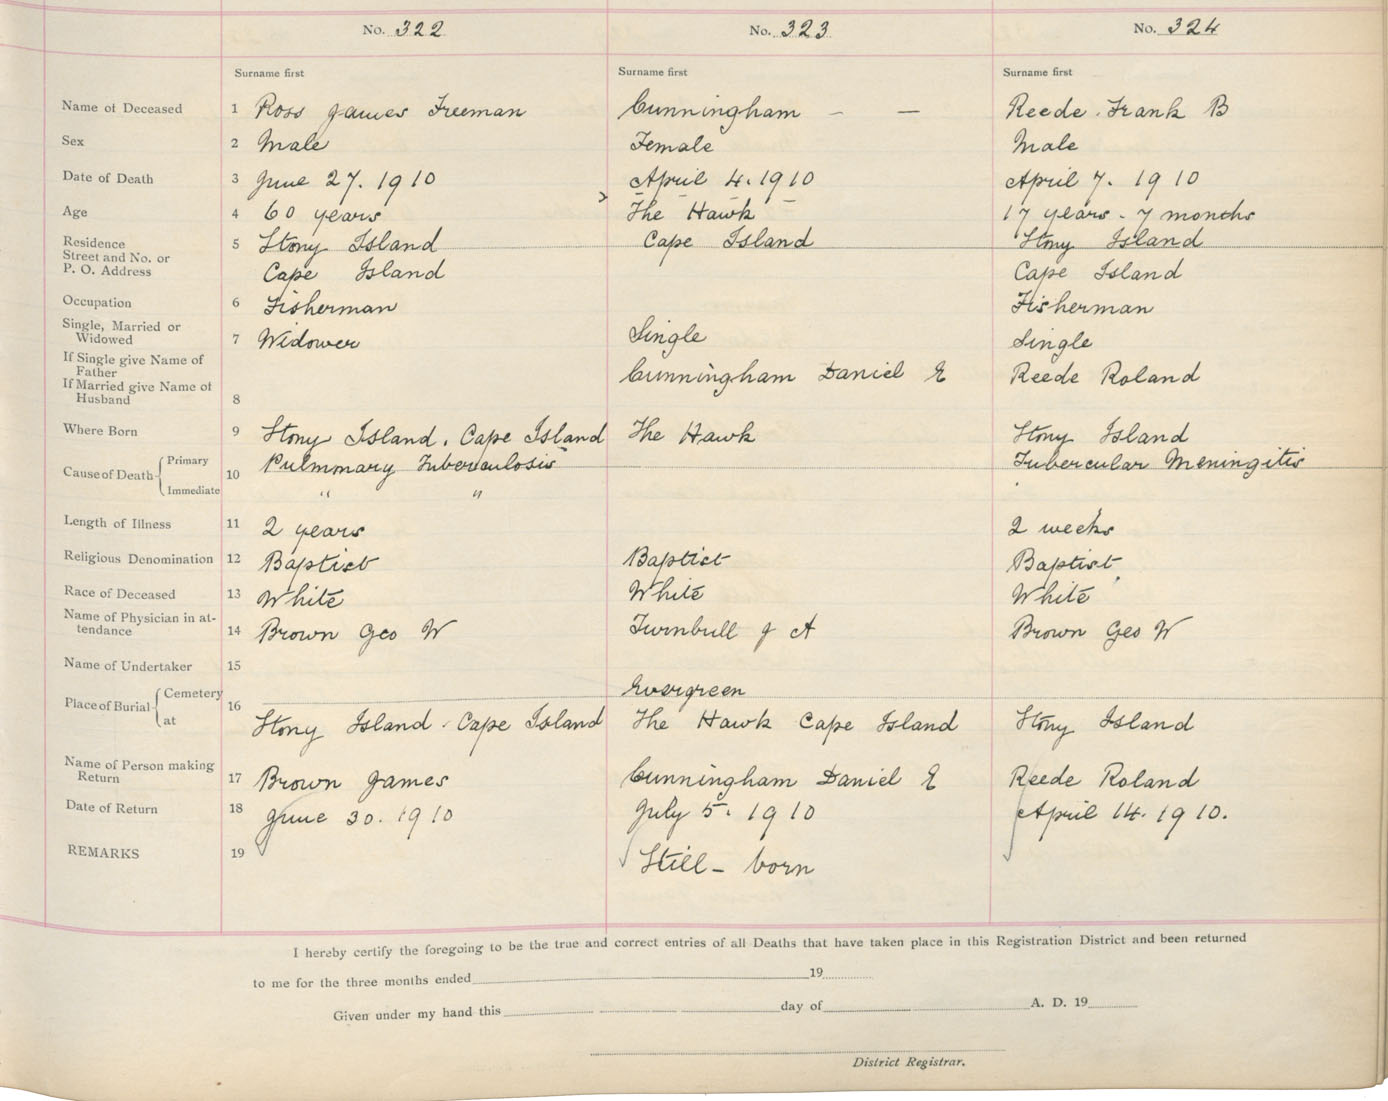 No. 322 No. 323 No. 324
Surname first Surname first Surname first
Name of Deceased 1 Ross James Freeman Cunningham – — Reede . Frank B
Sex 2 Male Female Male
Date of Death 3 June 27. 1910 April 4. 1910 April 7. 1910
Age 4 60 years The Hawk 17 years - 7 months
Residence 5 Stony Island Cape Island Stony Island
Street and No. or
P. O. Address Cape Island Cape Island
Occupation 6 Fisherman Fisherman
Single, Married or
Widowed 7 Widower Single Single
If Single give Name of
Father Cunningham Daniel E Reede Roland
If Married give Name of
Husband 8
Where Born 9 Stony Island. Cape Island The Hawk Stony Island
Cause of Death Primary 10 Pulmonary Tuberculosis Tubercular Meningitis
Immediate " "
Length of Illness 11 2 years 2 weeks
Religious Denomination 12 Baptist Baptist Baptist
Race of Deceased 13 White White White
Name of Physician in at-
tendance 14 Brown Geo W Turnbull J A Brown Geo W
Name of Undertaker 15
Place of Burial Cemetery 16 Evergreen
at Stony Island . Cape Island The Hawk Cape Island Stony Island
Name of Person making
Return 17 Brown James Cunningham Daniel E Reede Roland
Date of Return 18 June 30. 1910 July 5. 1910 April 14. 1910.
REMARKS 19 Still - born
I hereby certify the foregoing to be the true and correct entries of all Deaths that have taken place in this Registration District and been returned
to me for the three months ended 19
Given under my hand this day of A. D. 19
District Registrar.